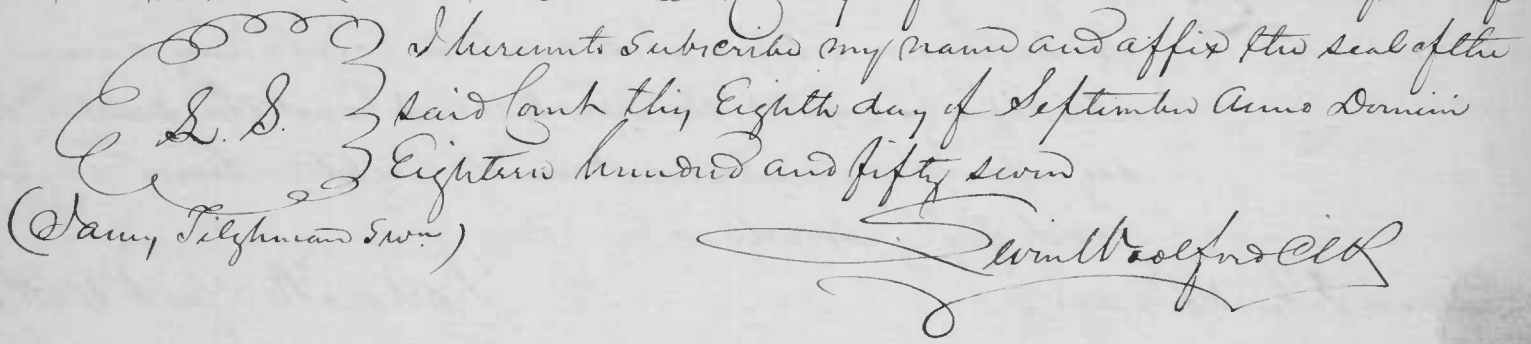 I hereunto Subscribe my name and affix the seal of the
L. S. said Court this Eighth day of September Anno Domini
Eighteen hundred and fifty seven
(James Tilghman Swn)
Levin Woolford Clk